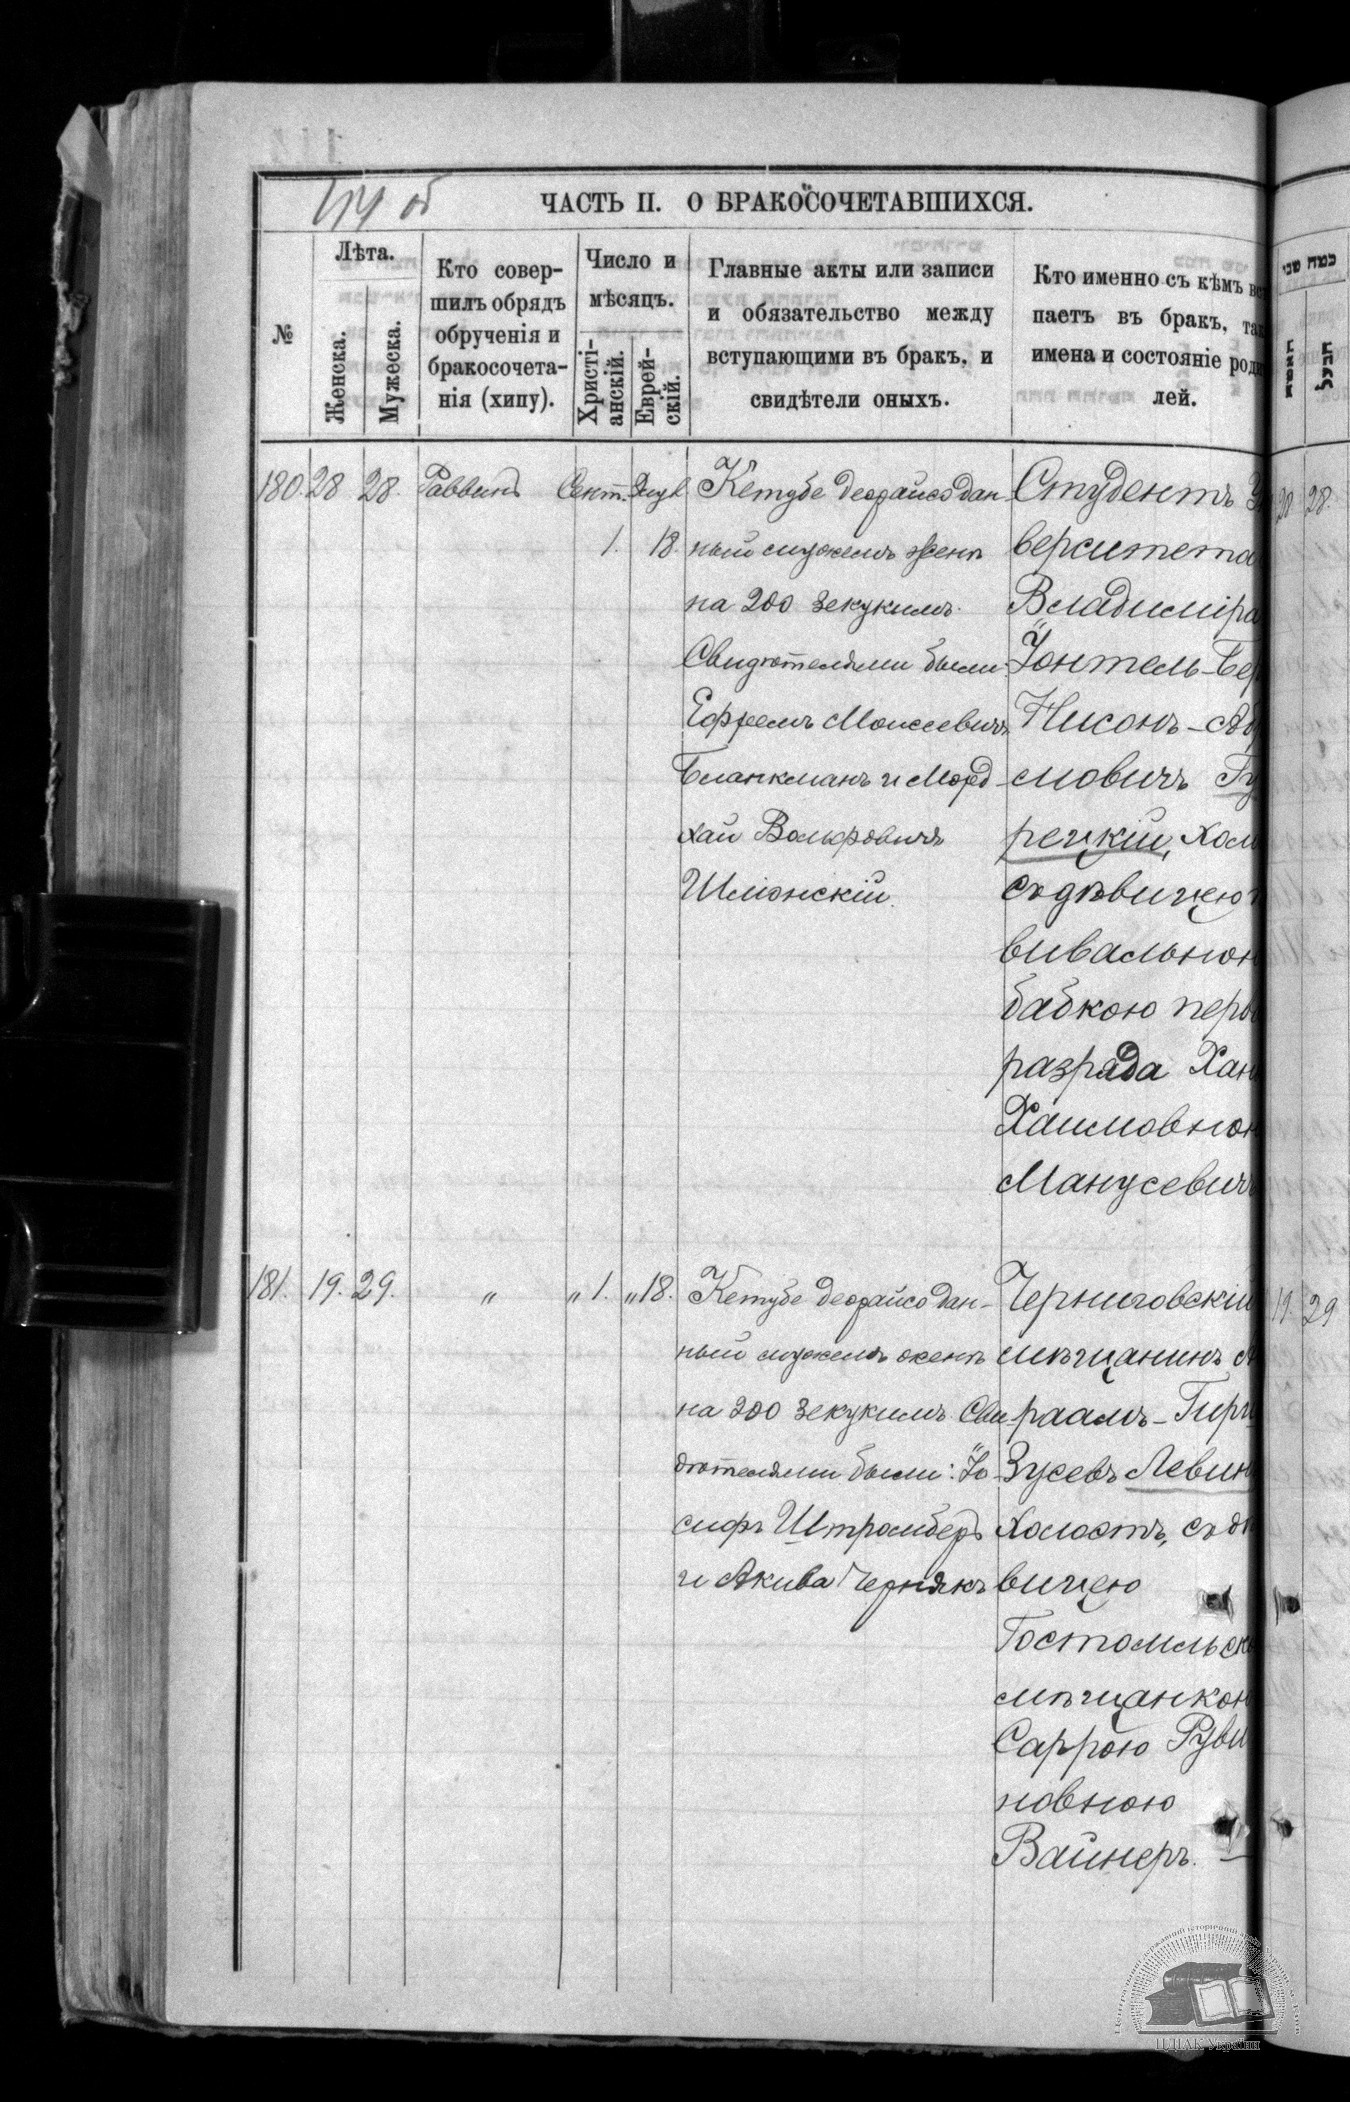 114 об
ЧАСТЬ II. О БРАКОСОЧЕТАВШИХСЯ.
№
Лѣта.
Женска.
Мужеска.
Кто совер-
шилъ обрядъ
обрученія и
бракосочета-
нія (хипу).
Число и
мѣсяцъ.
Христі-
анскій.
Еврей-
скій.
Главные акты или записи
и обязательство между
вступающими въ бракъ, и
свидѣтели оныхъ.
Кто именно съ кѣмъ вс
паетъ въ бракъ, так
имена и состояніе роди
лей.
כמה שני
180. 28 28. Раввинъ Сент. 1. Элул 18.
Кетубе деорайсо дан-
ный мужемъ женѣ
на 200 зекукимъ.
Свидѣтелями были:
Ефремъ Моисеевичъ
Бланкманъ и Морд
хай Вольфовичъ
Шліонскій.
Студентъ Ун
верситета
Владиміра
Іонтель-Бер
Нисонъ-Аб
мовичъ Гу
рецкій, холо
съ дѣвицею
вивальною
бабкою перв
разряда Хан
Хаимовною
Манусевичъ
20 28.
181. 19. 29. „ „ 1. „ 18.
Кетубе деорайсо дан-
ный мужемъ женѣ
на 200 зекукимъ. Сви
дѣтелями были: Іо-
сифъ Штромберъ
и Акива Чернякъ
Черниговскій
мѣщанинъ А
раамъ-Гирш
Зусевъ Левин
холостъ, съ дѣ
вицею
Гостомльск
мѣщанкою
Саррою Руви
новною
Вайнеръ.
19. 29
ЦДІАК України